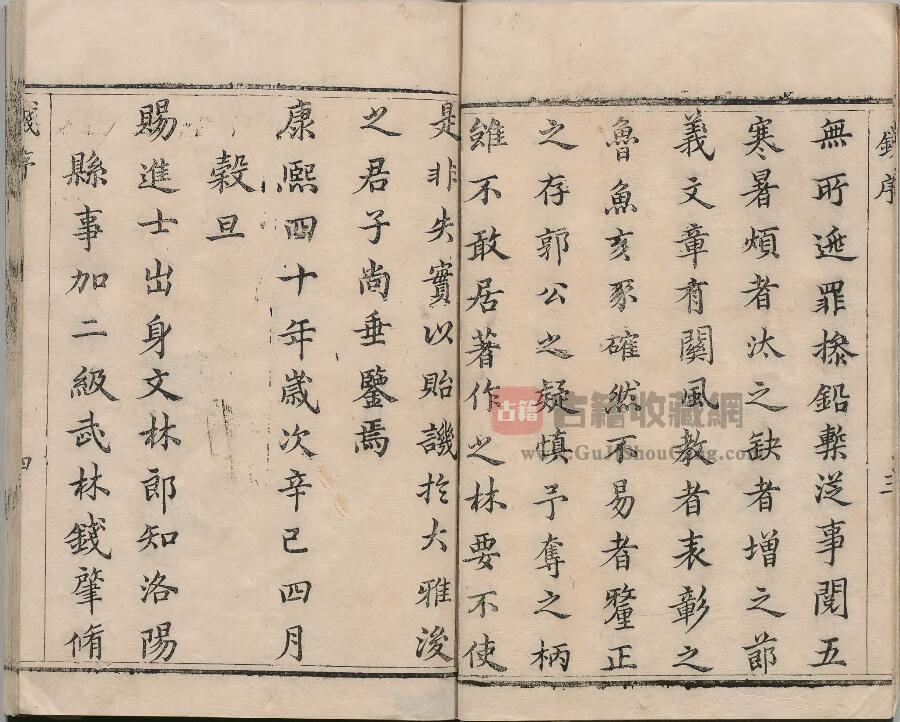 錢序
三
無所逃罪摻鉛槧從事閱五
寒暑煩者汰之缺者增之節
義文章有關風教者表彰之
魯魚亥豕確然不易者釐正
之存郭公之疑慎予奪之柄
雖不敢居著作之林要不使
是非失實以貽譏於大雅後
之君子尚垂鑒焉
康熙四十年歲次辛巳四月
穀旦
賜進士出身文林郎知洛陽
縣事加二級武林錢肇脩
錢序
四
古籍
古籍收藏網
www.GuJiShouCang.com